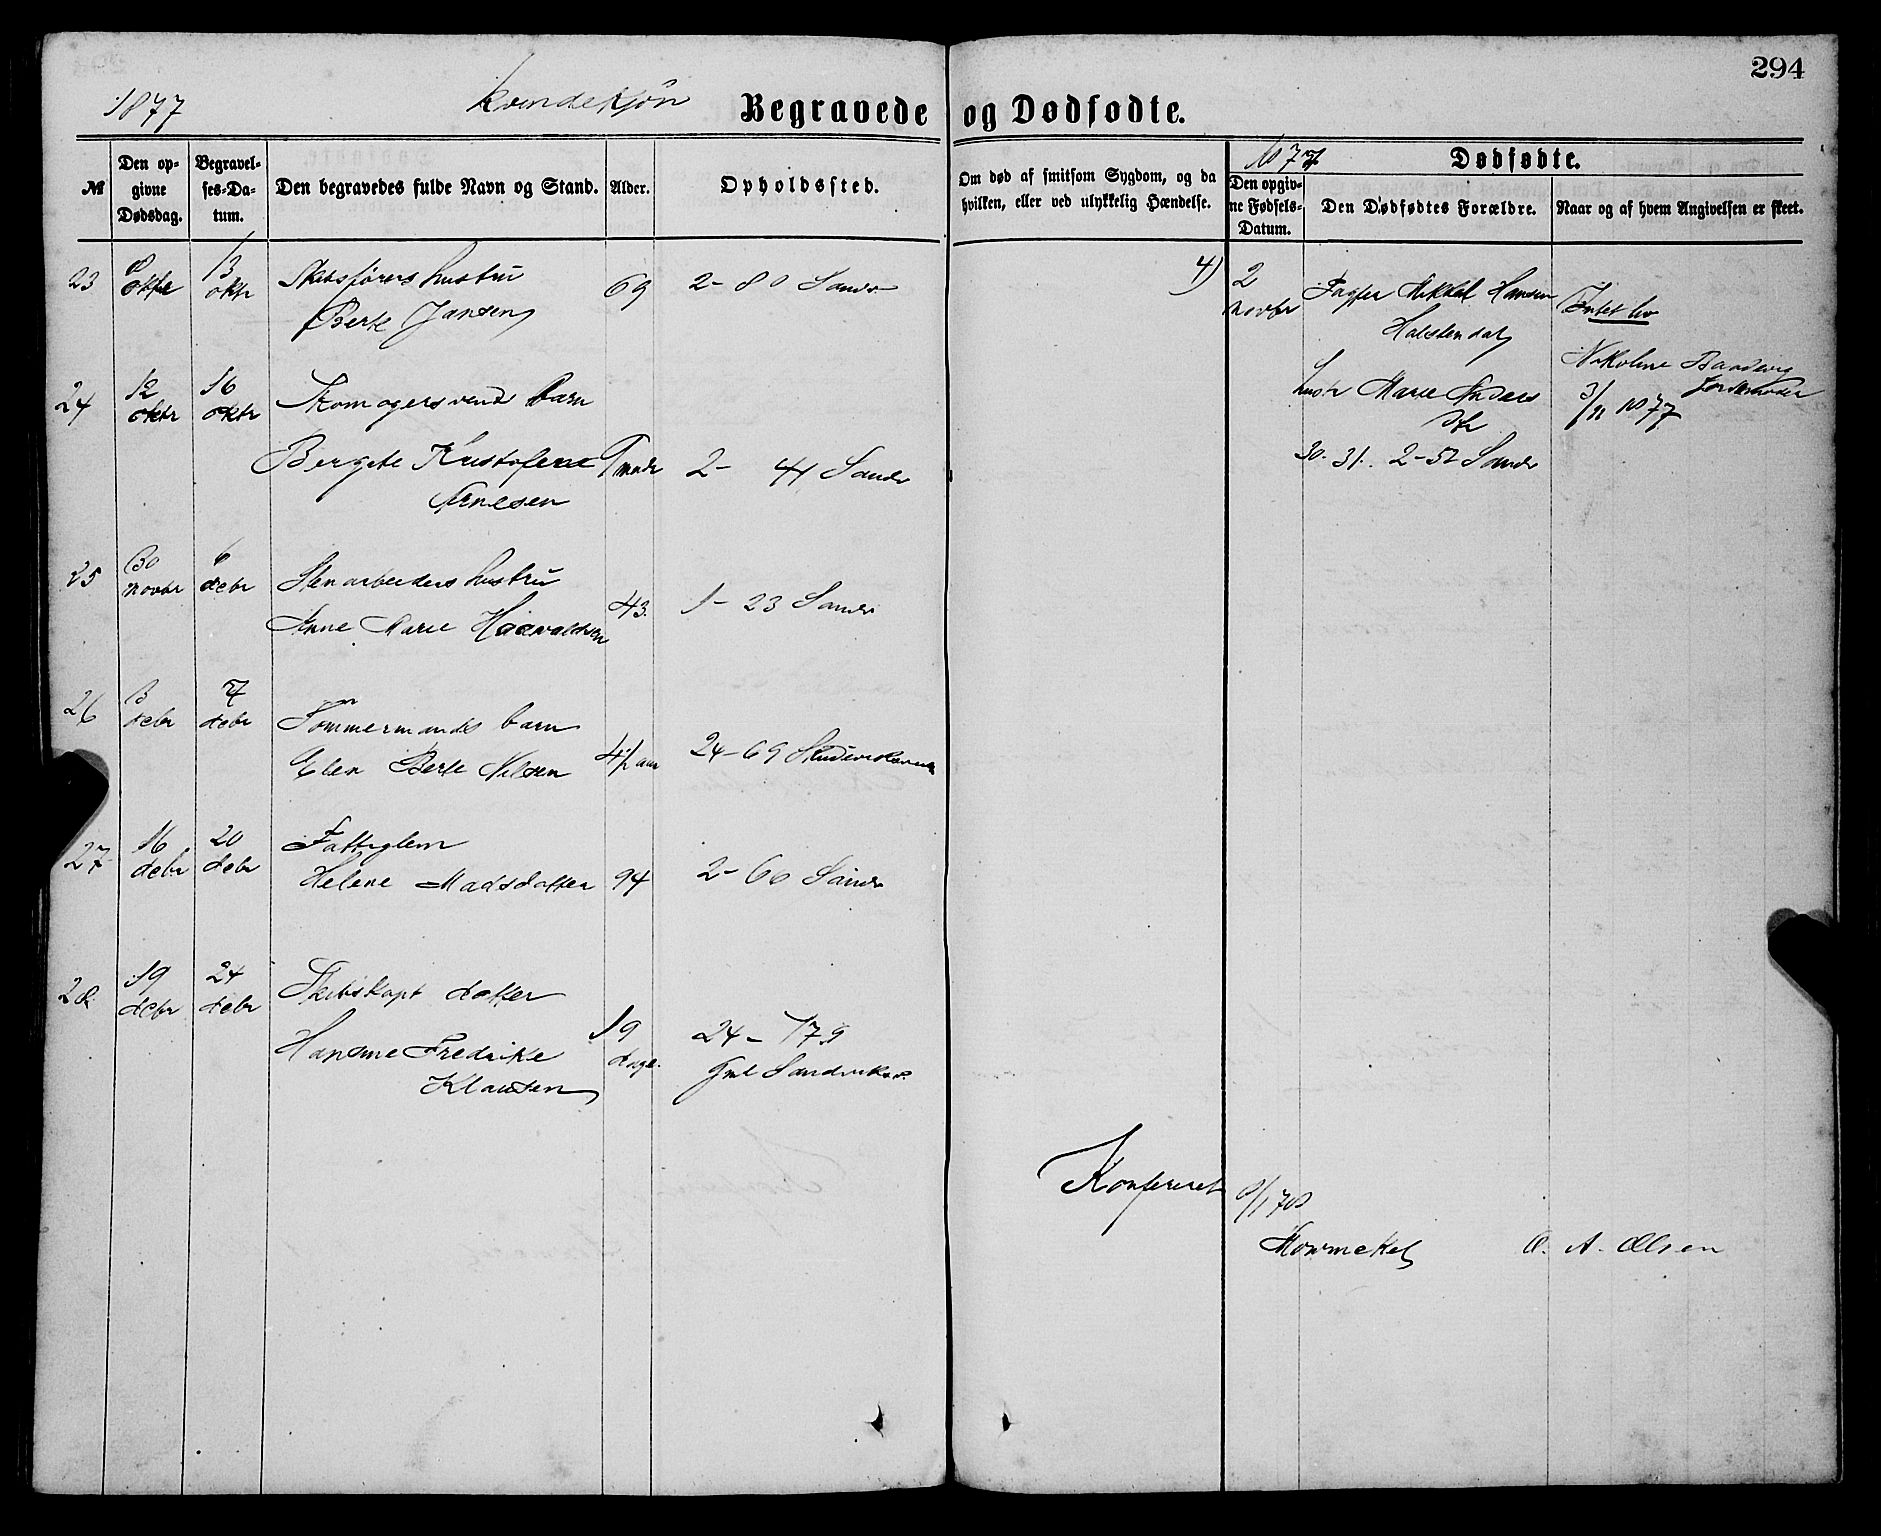 294
1877 Kvindekjøn
Begravede og Dødfødte.
№
Den opgivne Dødsdag.
Begravelses-Datum.
Den begravedes fulde Navn og Stand.
Alder.
Opholdssted.
Om død af smitsom Sygdom, og da hvilken, eller ved ulykkelig Hændelse.
1877
Dødfødte.
Den opgivne Fødsels-Datum.
Den Dødfødtes Forældre.
Naar og af hvem Angivelsen er skeet.
23 8 oktr 13 oktr Skibsførers hustru 69 2-80 Sandv
Berte Jansen
24 12 oktr 16 oktr Skomagersvends barn
Bergete Kristofene mndr 2- 41 Sandv
Arnesen
25 30 novbr 6 debr Stenarbeiders hustru
Anne Marie Haavaldsen 43. 1-23 Sandv
26 3 debr 7 debr Tømmermands barn
Elen Berte Nilsen 4½ aar 24-69
27 16 debr 20 debr Fattiglem
Helene Madsdatter 94 2-66 Sandv
28. 19 debr 24 debr Skibskapt datter
Hansine Fredrike 19 dage. 24-179
Klausen Gml Sandviksv.
4) 2 novbr Mikkel Hansen
Halstendal
Intet liv
hustr Marie Anders
dtr
Nikoline
Jordemoder
3/11 1877
30. 31. 2-52 Sandv
Konfereret 8/1 78
Mowinckel O. A. Olsen